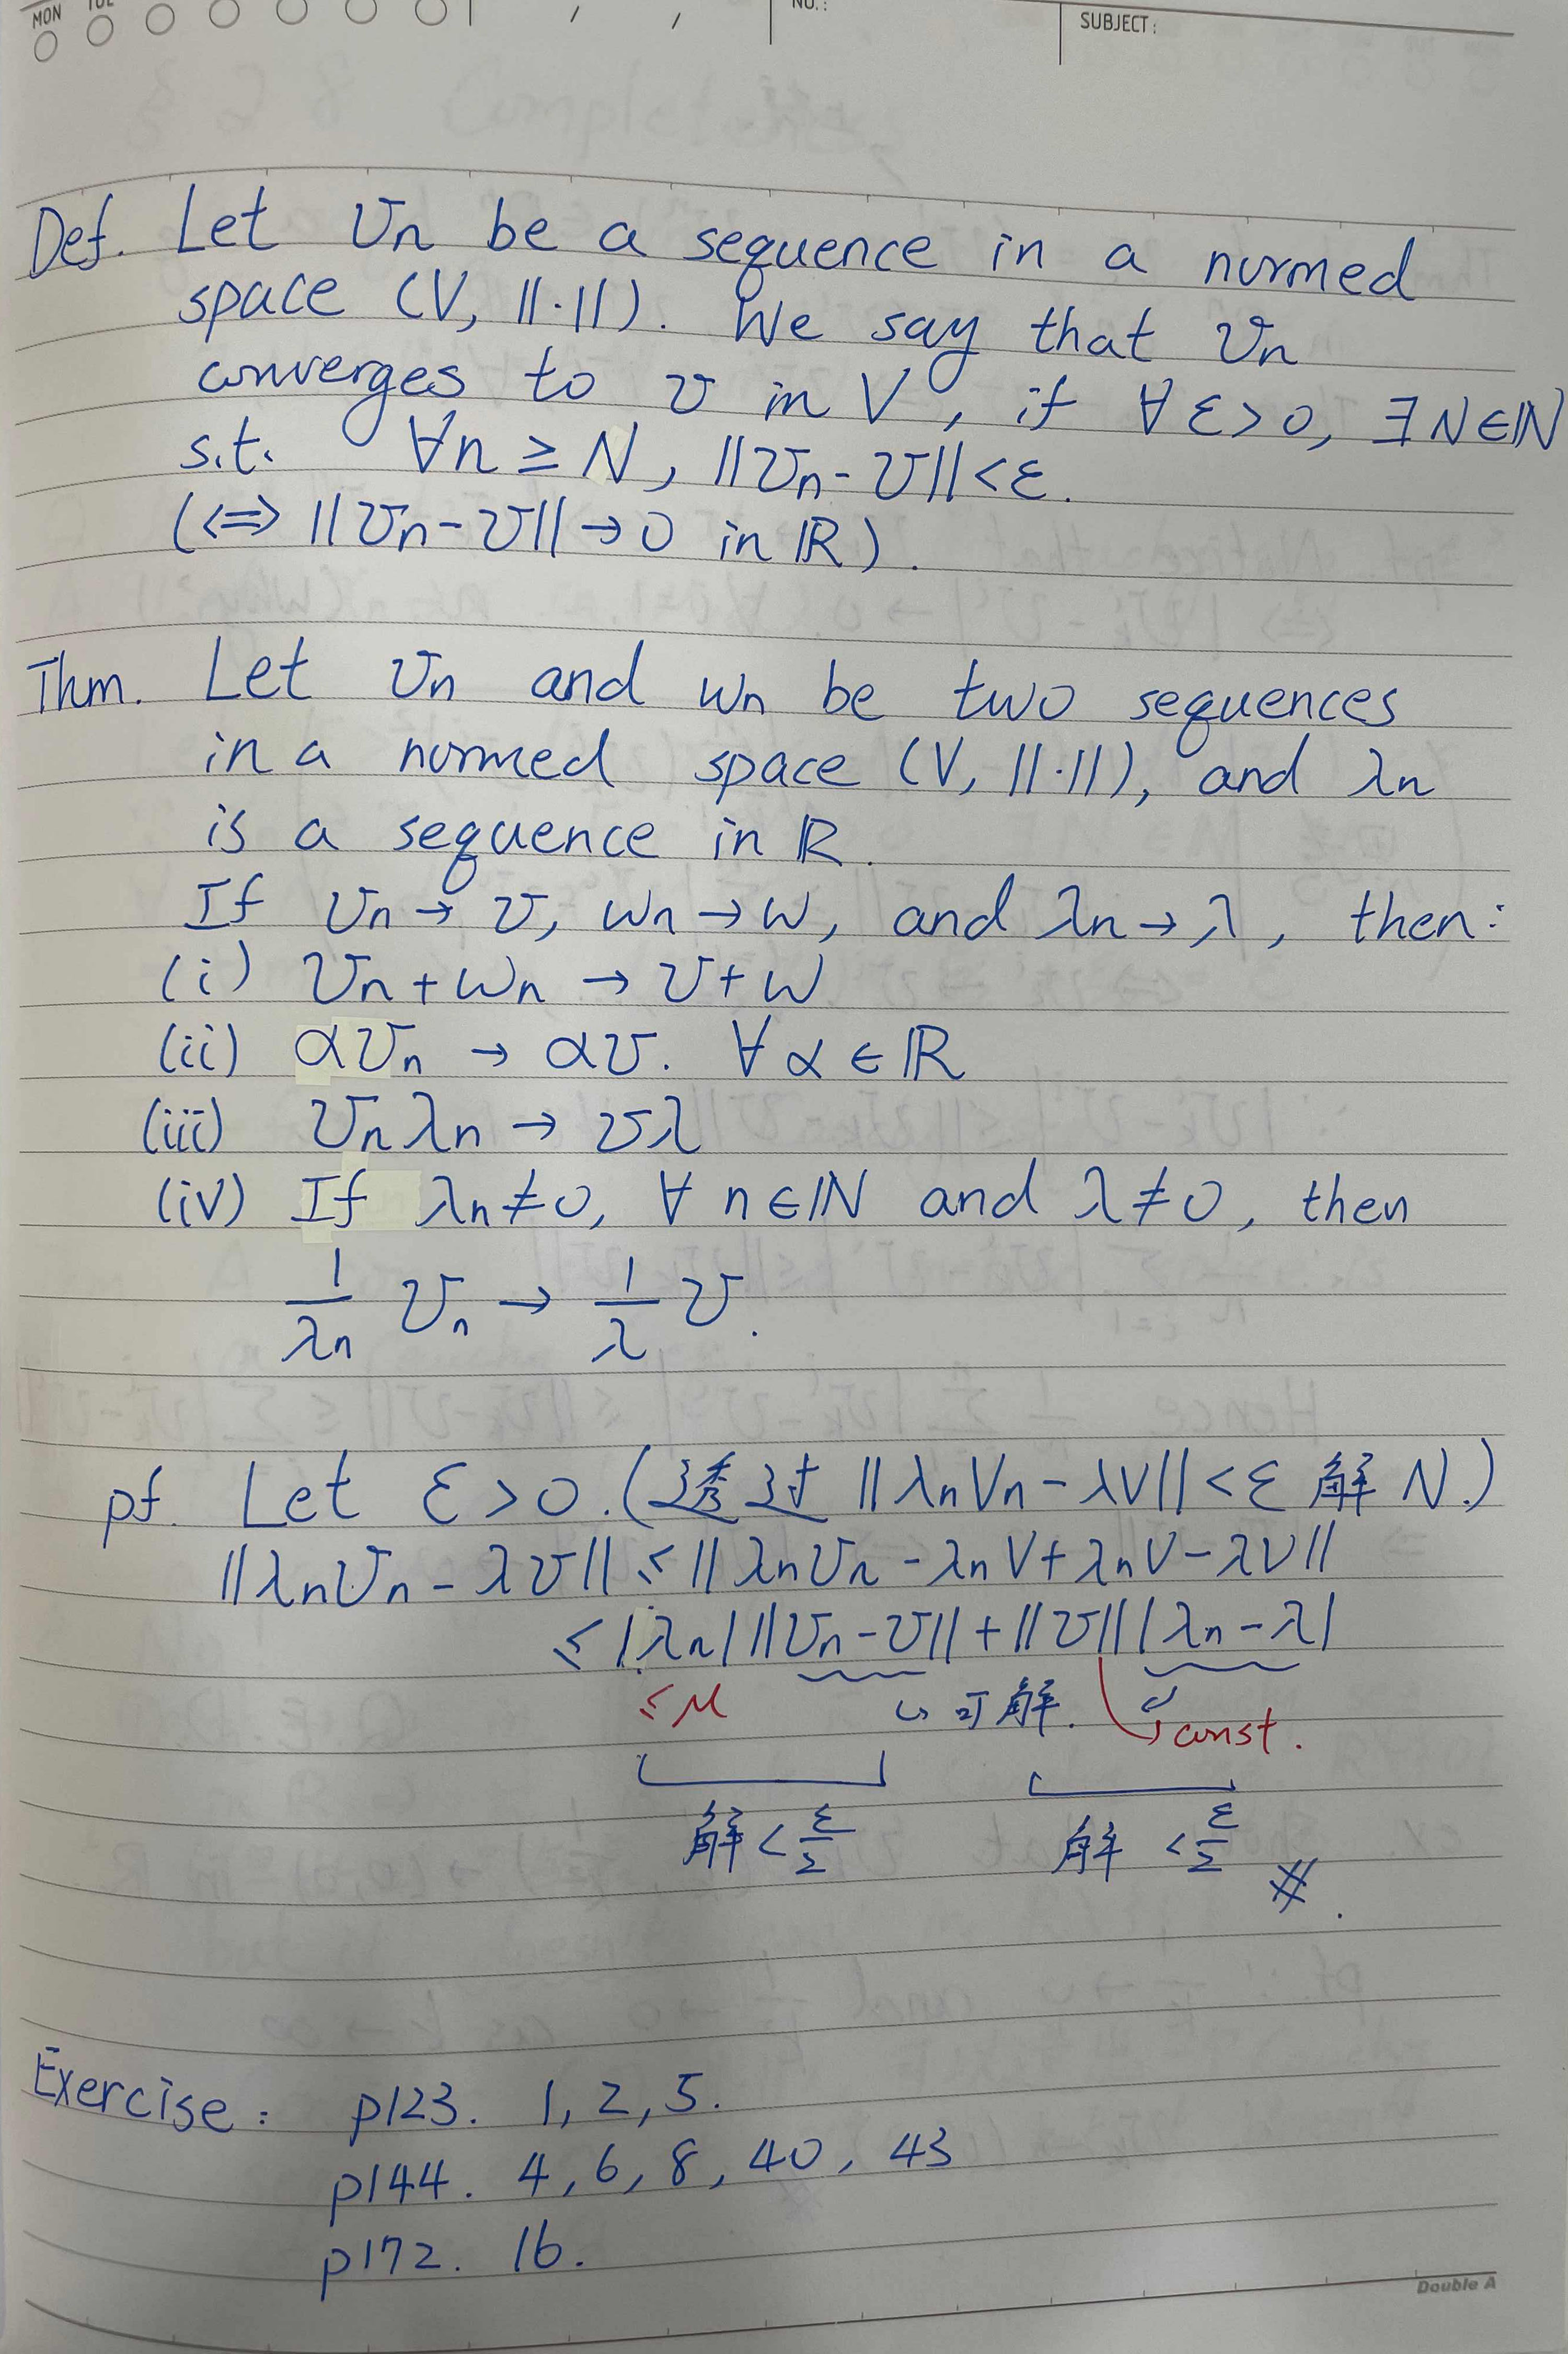 MON TUE
NO.:
SUBJECT:
Def. Let Vn be a sequence in a normed
space (V, ||·||). We say that Vn
converges to v in V, if ∀ε>0, ∃N∈ℕ
s.t. ∀n ≥ N, ||Vn - V|| < ε.
(⇔ ||Vn - V|| → 0 in ℝ).
Thm. Let Vn and Wn be two sequences
in a normed space (V, ||·||), and λn
is a sequence in ℝ.
If Vn → v, Wn → W, and λn → λ, then:
(i) Vn + Wn → V + W
(ii) αVn → αV. ∀α∈ℝ
(iii) Vn λn → Vλ
(iv) If λn ≠ 0, ∀n∈ℕ and λ ≠ 0, then
1/λn Vn → 1/λ V.
pf. Let ε > 0. (透过 ||λnVn - λV|| < ε 解 N.)
||λnVn - λV|| ≤ ||λnVn - λnV + λnV - λV||
≤ |λn| ||Vn - V|| + ||V|| |λn - λ|
≤ M ↪ 可解. ↳ const.
解 < ε/2 解 < ε/2 #.
Exercise: p123. 1, 2, 5.
p144. 4, 6, 8, 40, 43
p172. 16.
Double A